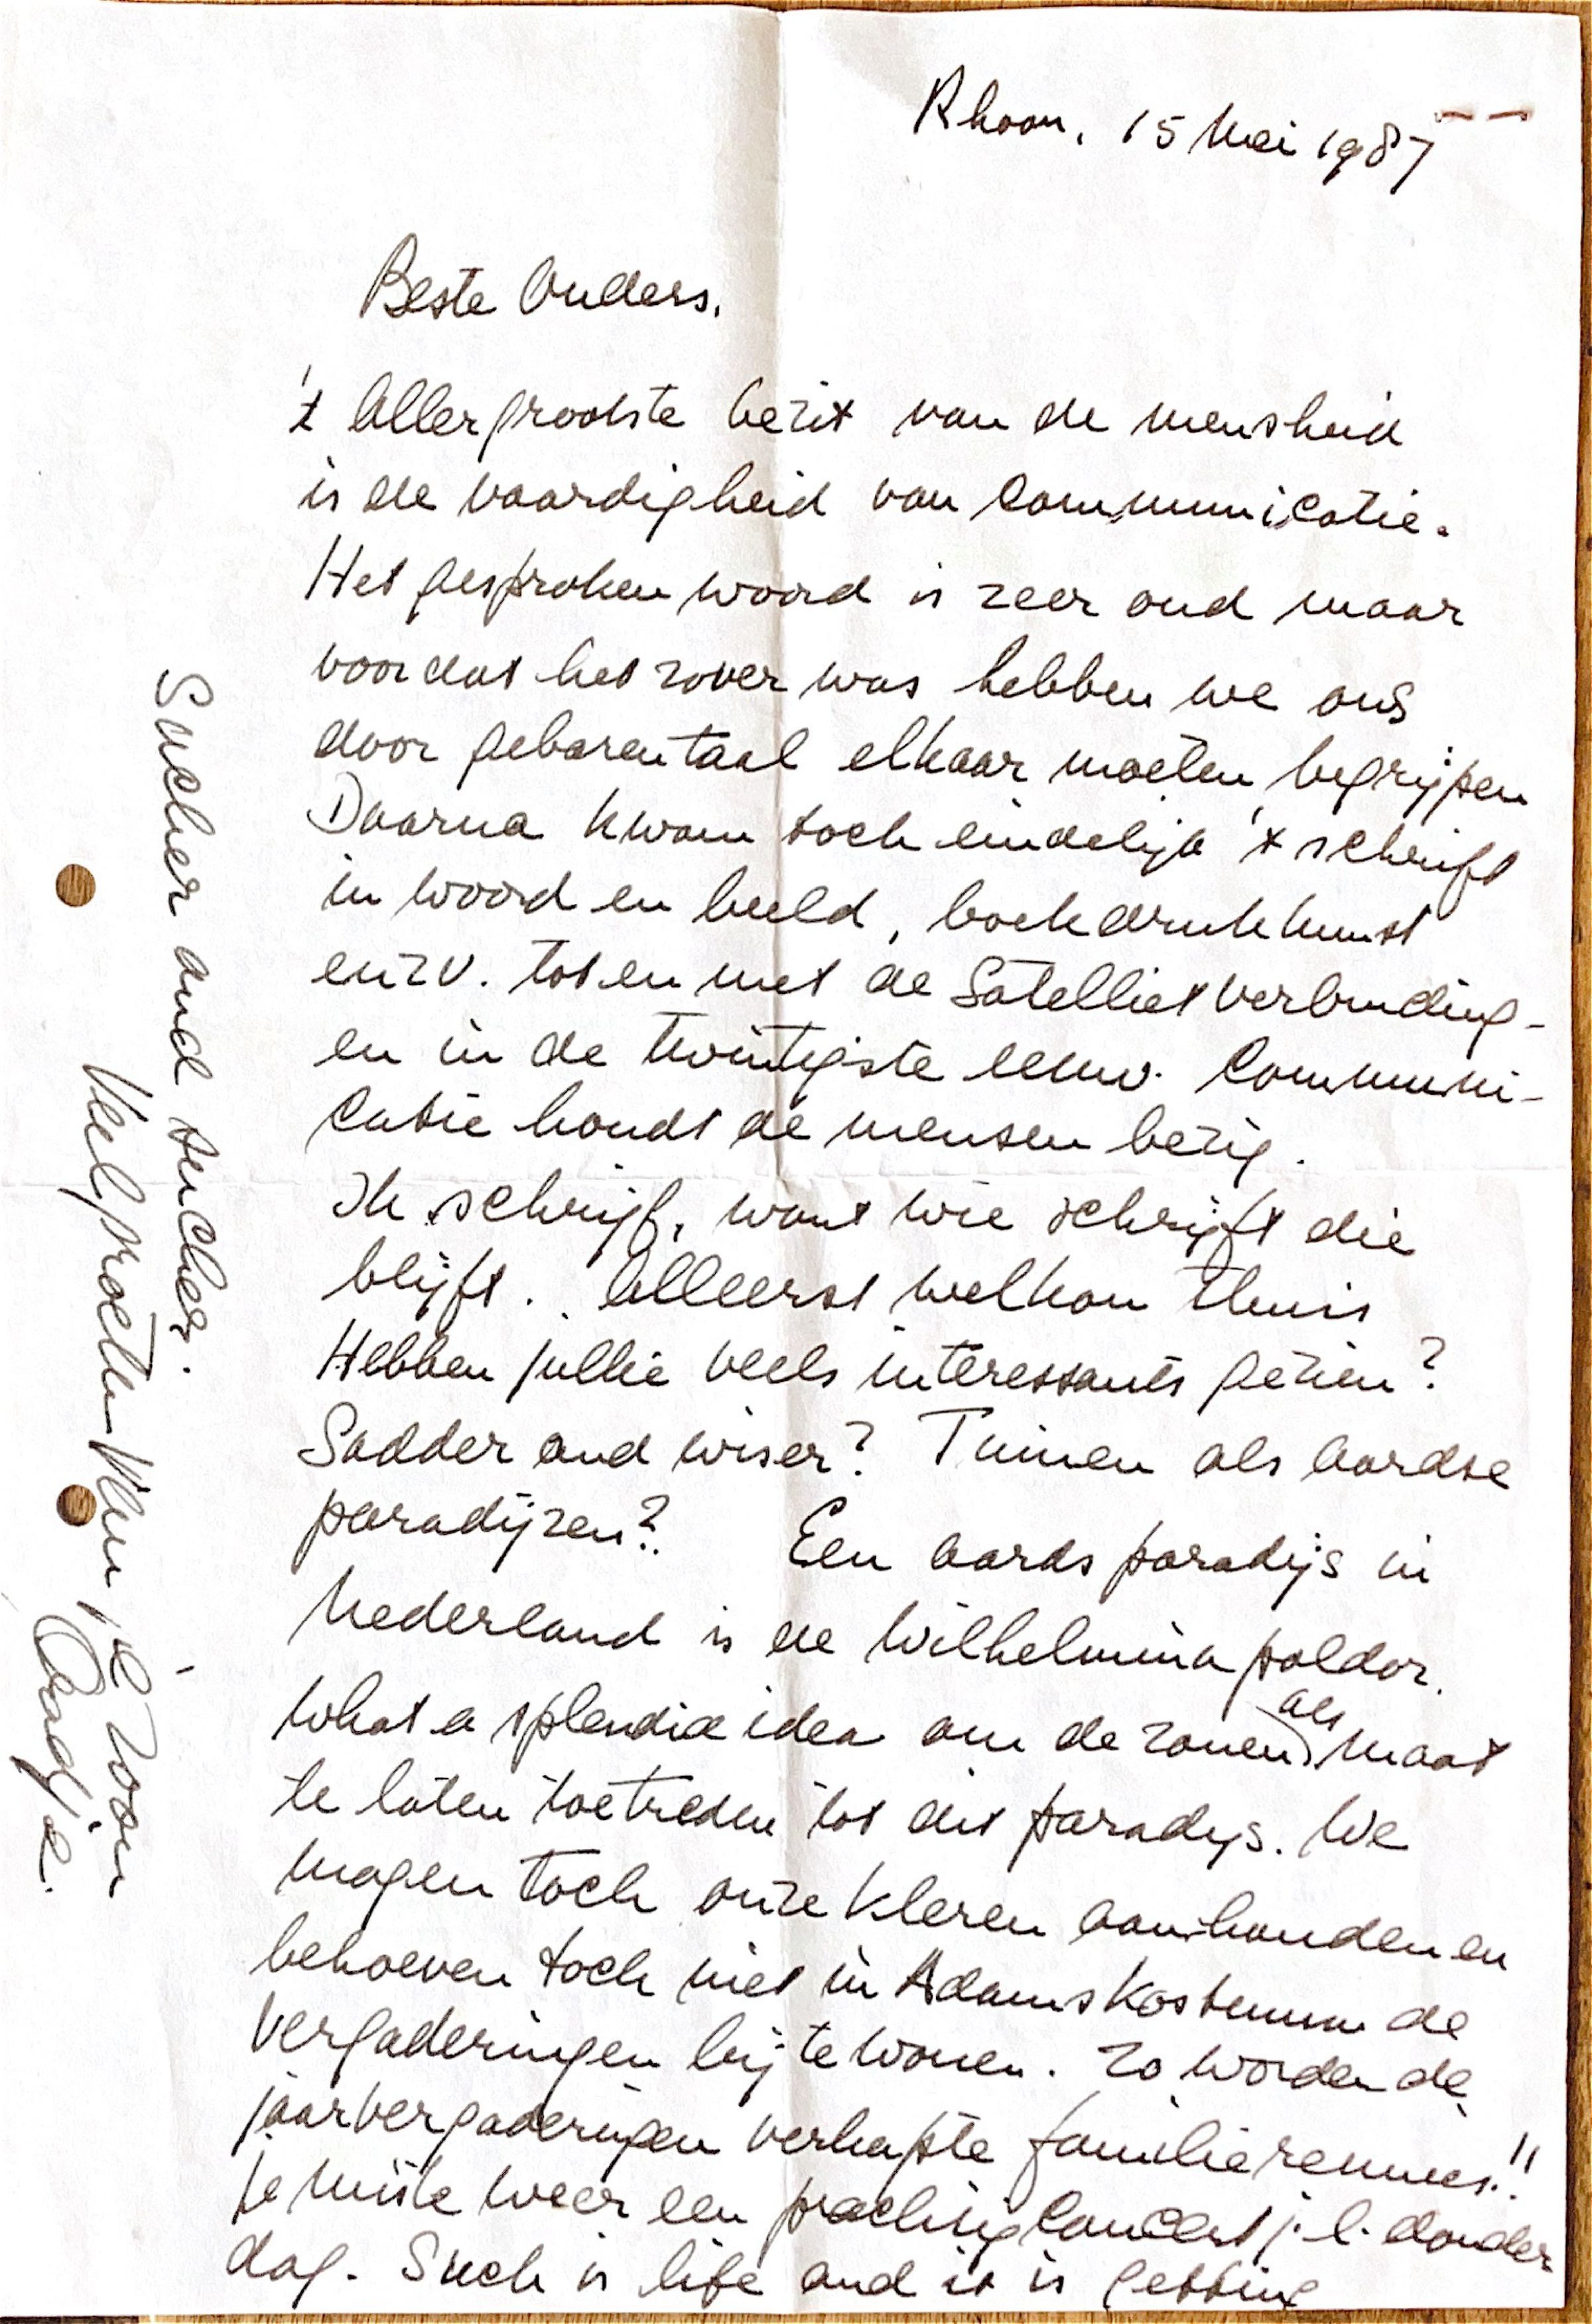 Rhoon, 15 Mei 1987
Beste Ouders,
't Allergrootste bezit van de mensheid
is de vaardigheid van Communicatie.
Het gesproken woord is zeer oud maar
voordat het zover was hebben we ons
door gebarentaal elkaar moeten begrijpen
Daarna kwam toch eindelijk 't schrift
in woord en beeld, boekdrukkunst
enzv. tot en met de Satellietverbinding-
en in de twintigste eeuw. Communi-
catie houdt de mensen bezig.
Ik schrijf, want wie schrijft die
blijft. Alleerst welkom thuis
Hebben jullie veels interessants gezien?
Sadder and wiser? Tuinen als aardse
paradijzen? Een aards paradijs in
Nederland is de Wilhelmina polder.
What a splendid idea om de zonen als maat
te laten toetreden tot dit paradijs. We
mogen toch onze kleren aanhouden en
behoeven toch niet in Adamskostuum de
vergaderingen bij te wonen. Zo worden de
jaarvergaderingen verkapte familiereunies!!
Je miste weer een prachtig Concert j.l. donder
dag. Such is life and it is getting
Sucher and sucher.
Veel groeten Uw je zoon